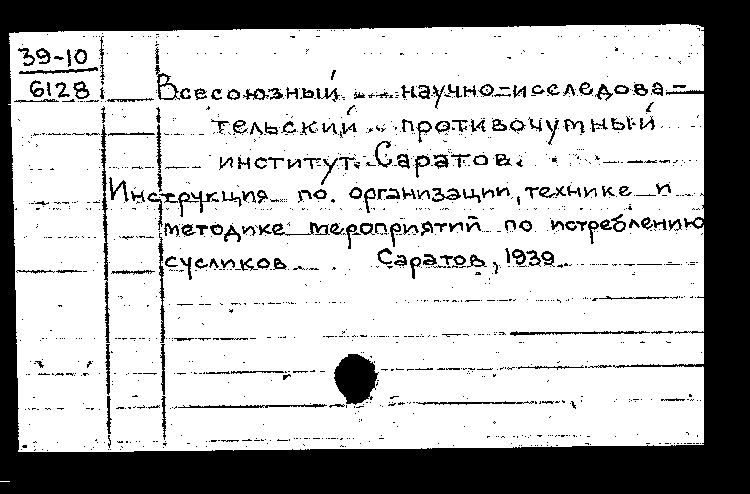 39-10
6128
Всесоюзный научно-исследова-
тельский противочумный
институт. Саратов.
Инструкция по организации, технике и
методике мероприятий по истреблению
сусликов Саратов, 1939